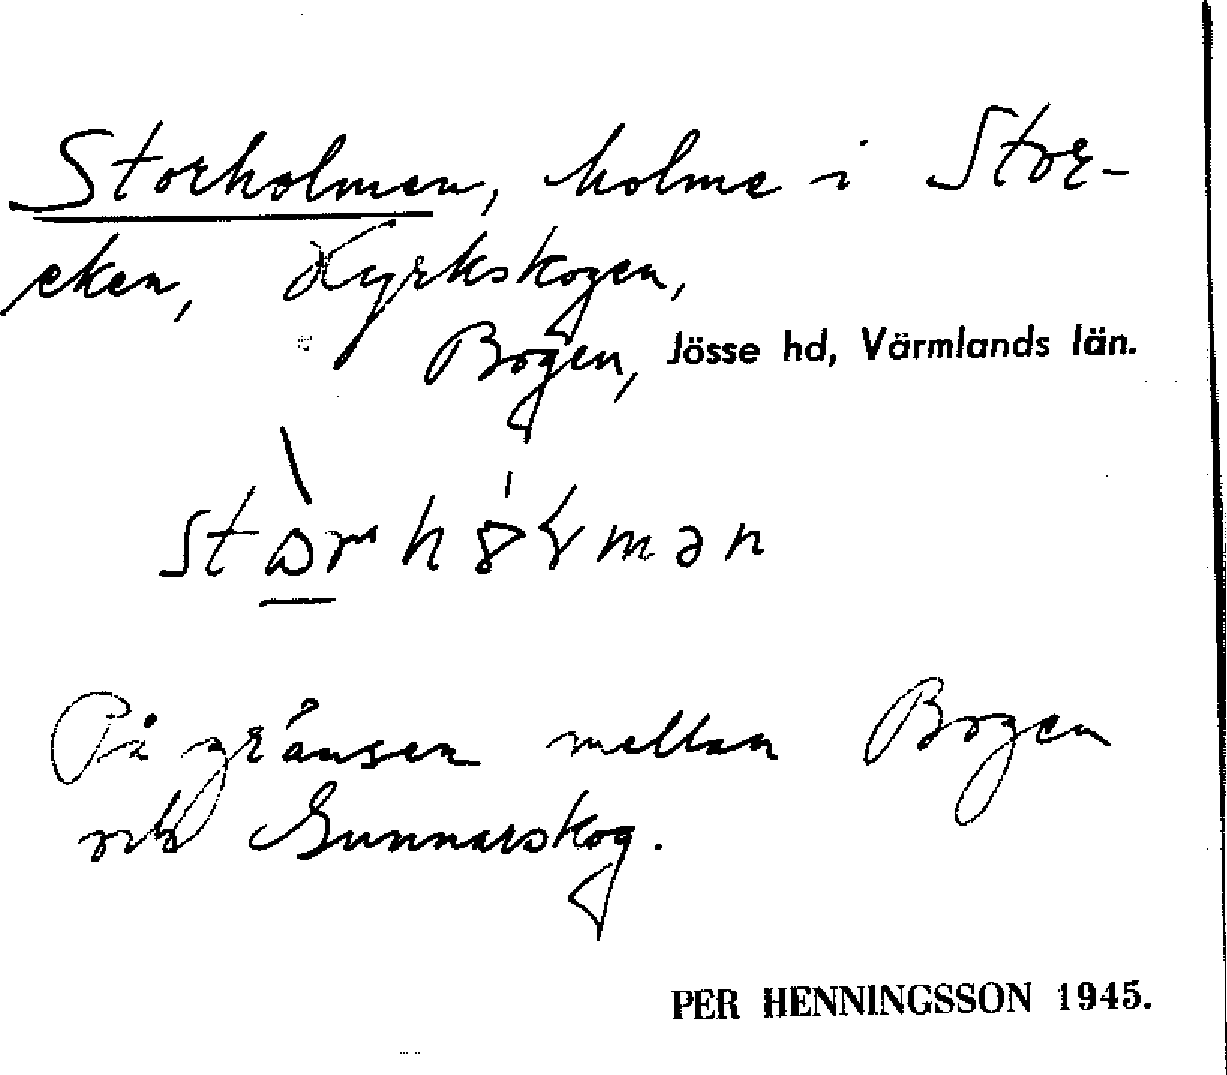 Storholmen, holme i Stor-
eken, Kyrkskogen,
Bogen, Jösse hd, Värmlands län.
På gränsen mellan Bogen
och Gunnarskog.
PER HENNINGSSON 1945.